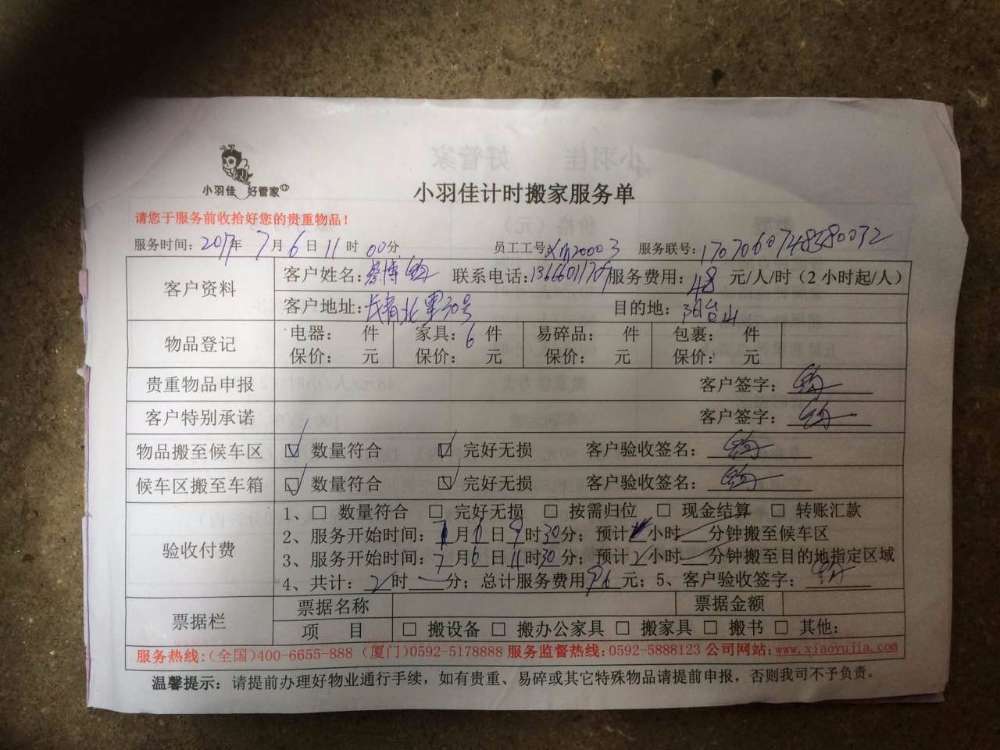 小羽佳 好管家
小羽佳计时搬家服务单
请您于服务前收拾好您的贵重物品!
服务时间:2017年7月6日11时00分 员工工号: 服务联号:
客户资料 客户姓名: 联系电话: 服务费用:48元/人/时(2小时起/人)
客户地址: 目的地:阳台山
物品登记 电器: 件 家具:6件 易碎品: 件 包裹: 件
保价: 元 保价: 元 保价: 元 保价: 元
贵重物品申报 客户签字:
客户特别承诺 客户签字:
物品搬至候车区 ☑ 数量符合 ☑ 完好无损 客户验收签名:
候车区搬至车箱 ☑ 数量符合 ☑ 完好无损 客户验收签名:
验收付费 1、□ 数量符合 □ 完好无损 □ 按需归位 □ 现金结算 □ 转账汇款
2、服务开始时间:月6日9时30分;预计小时分钟搬至候车区
3、服务开始时间:7月6日11时30分;预计2小时分钟搬至目的地指定区域
4、共计:2时分;总计服务费用96元;5、客户验收签字:
票据栏 票据名称 票据金额
项 目 □ 搬设备 □ 搬办公家具 □ 搬家具 □ 搬书 □ 其他:
服务热线:(全国)400-6655-888 (厦门)0592-5178888 服务监督热线:0592-5888123 公司网站:www.xiaoyujia.com
温馨提示:请提前办理好物业通行手续,如有贵重、易碎或其它特殊物品请提前申报,否则我司不予负责。